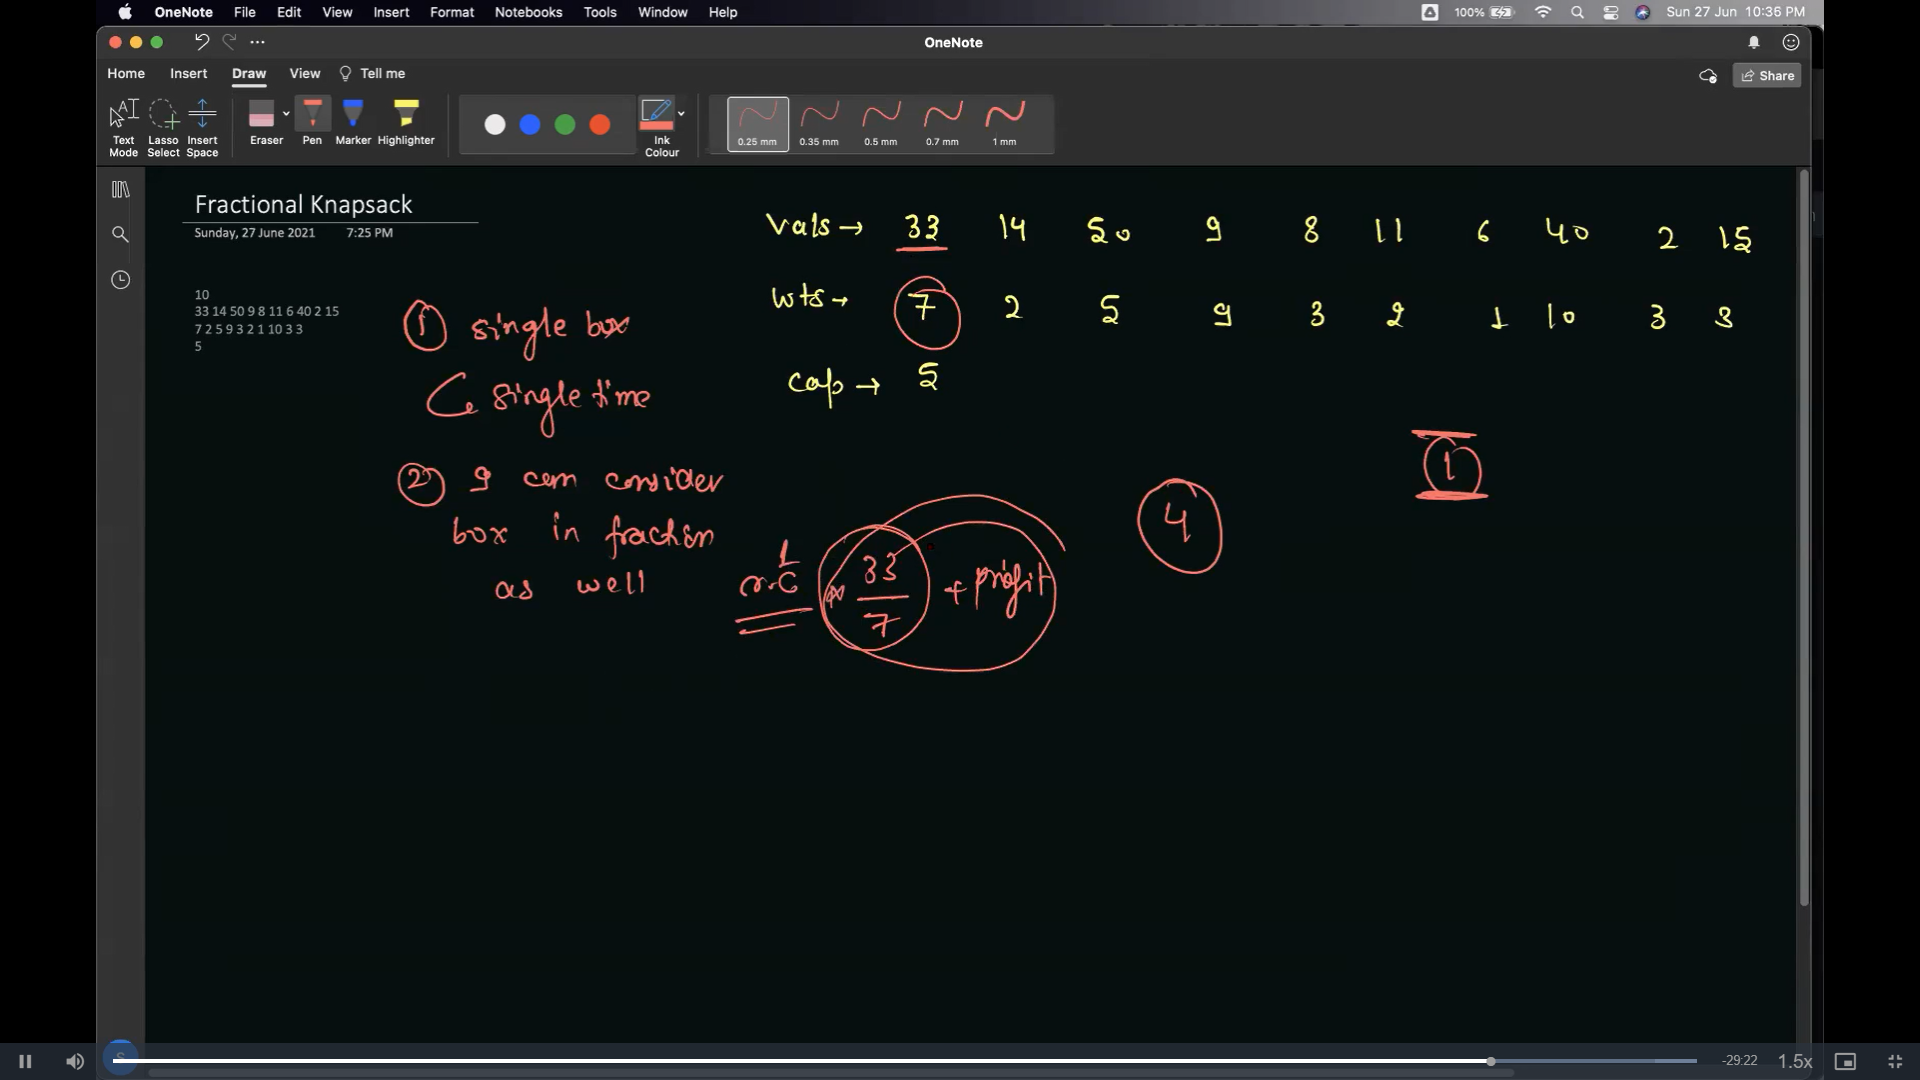 OneNote File Edit View Insert Format Notebooks Tools Window Help 100% Sun 27 Jun 10:36 PM
OneNote
Home Insert Draw View Tell me Share
Text Mode Lasso Select Insert Space Eraser Pen Marker Highlighter Ink Colour 0.25 mm 0.35 mm 0.5 mm 0.7 mm 1 mm
Fractional Knapsack
Sunday, 27 June 2021 7:25 PM
10
33 14 50 9 8 11 6 40 2 15
7 2 5 9 3 2 1 10 3 3
5
Vals → 33 14 50 9 8 11 6 40 2 15
wts → 7 2 5 9 3 2 1 10 3 3
cap → 5
① single box
single time
② I can consider
box in fraction
as well
1
r.C * 33/7 + profit
4
1
-29:22 1.5x